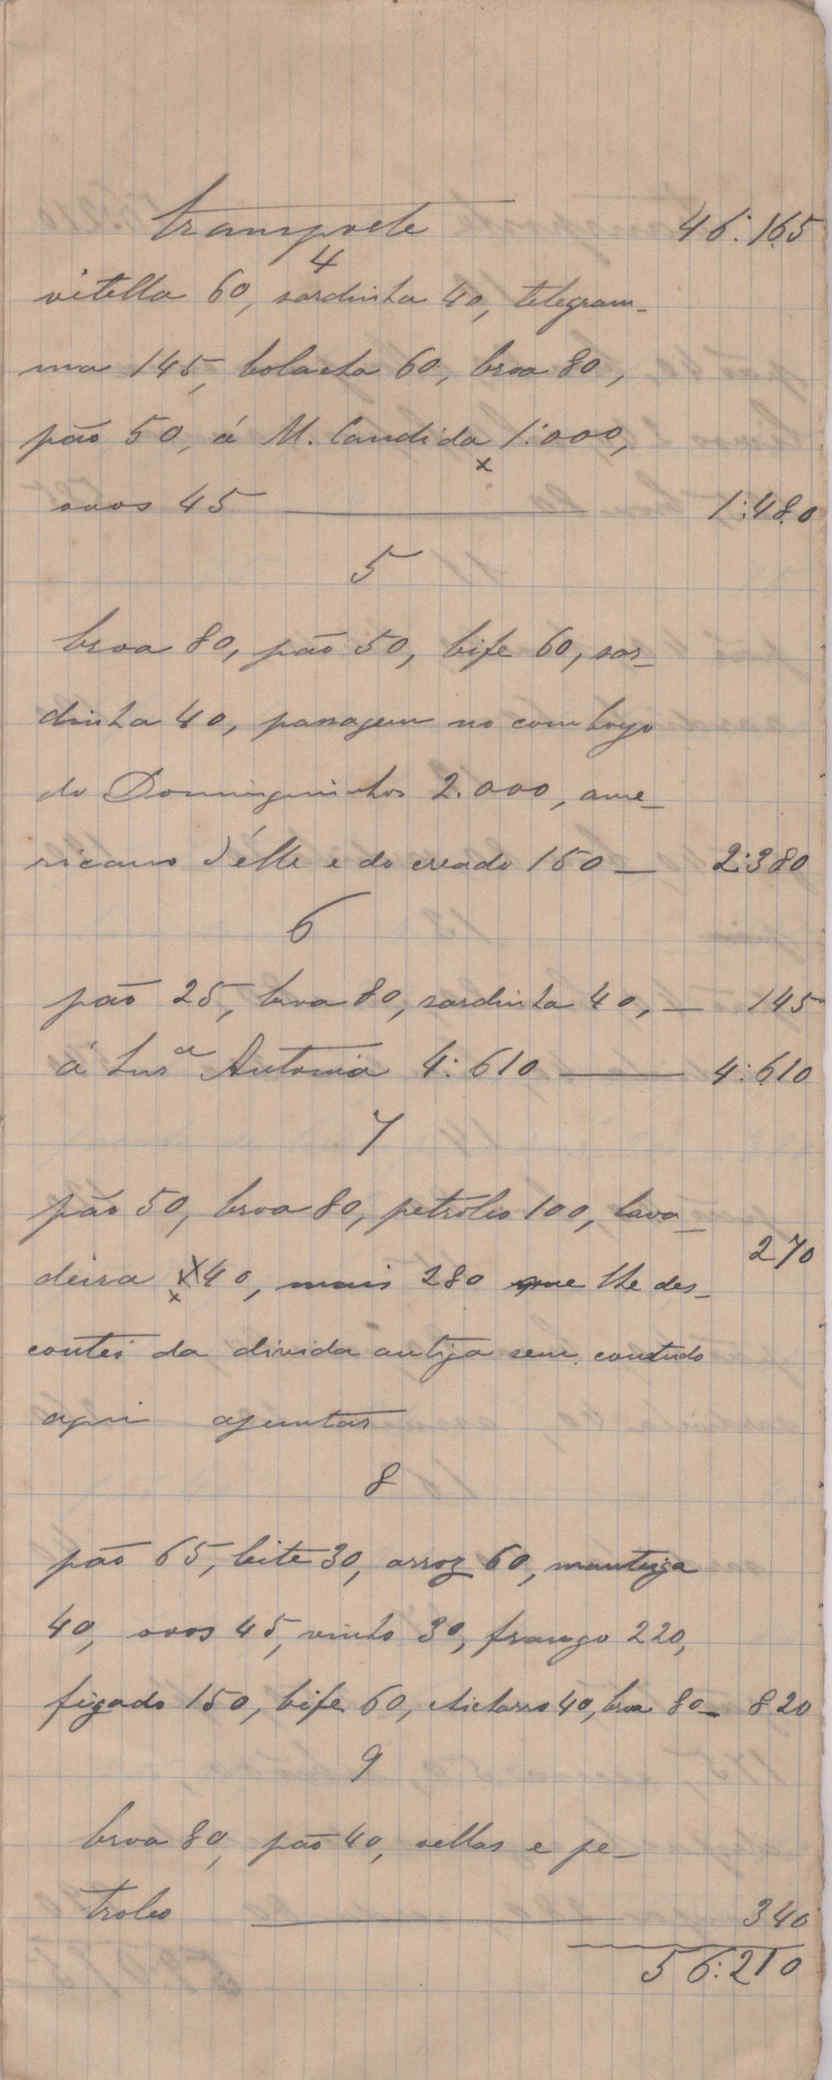 transporte 46:165
4
vitella 60, sardinha 40, telegram-
ma 145, bolacha 60, broa 80,
pão 50, á M. Candida 1:000,
x
ovos 45 — 1:480
5
broa 80, pão 50, bife 60, sar-
dinha 40, passagem no comboyo
do Dominguinhos 2.000, ame-
ricano d'elle e do creado 150 — 2:380
6
pão 25, broa 80, sardinha 40, — 145
á Snrª Antonia 4:610 — 4:610
7
pão 50, broa 80, petroleo 100, lava-
270
deira 40, mais 280 que lhe des-
x
contei da divida antiga sem, comtudo
aqui ajuntar
8
pão 65, leite 30, arroz 60, manteiga
40, ovos 45, vinho 30, frango 220,
figado 150, bife 60, chicharro 40, broa 80 - 820
9
broa 80, pão 40, vellas e pe-
troleo — 340
56:210